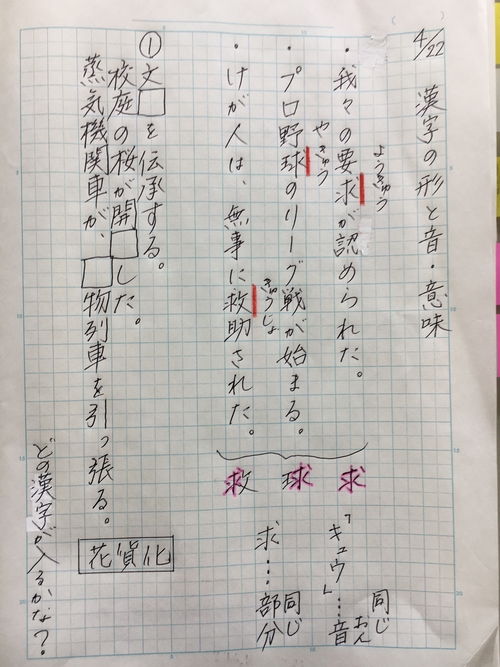 4/22 漢字の形と音・意味
・我々の要求が認められた。
ようきゅう
・プロ野球のリーグ戦が始まる。
やきゅう
・けが人は、無事に救助された。
きゅうじょ
求 球 救
「キュウ」…同じ音
おん
求…同じ部分
①文□を伝承する。
校庭の桜が開□した。
蒸気機関車が、□物列車を引っ張る。
花貨化
どの漢字が入るかな?